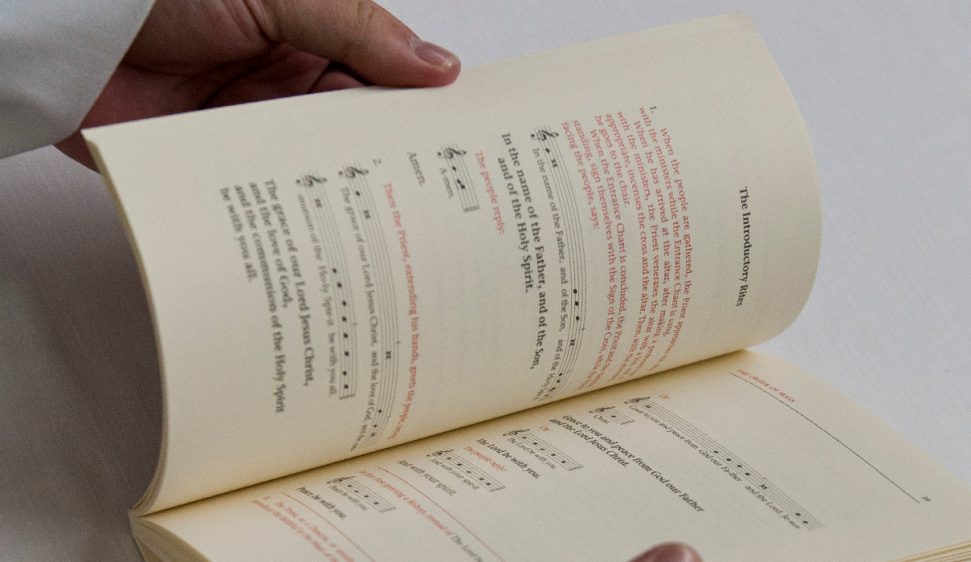 The Introductory Rites
1. When the people are gathered, the Priest
with the ministers while the Entrance Chant is sung.
When he has arrived at the altar, after making a
with the ministers, the Priest venerates the altar
appropriate, incenses the cross and the altar. Then, with the
he goes to the chair.
When the Entrance Chant is concluded, the Priest and the
standing, sign themselves with the Sign of the Cross, while the
facing the people, says:
In the name of the Father, and of the Son, and of the Holy
In the name of the Father, and of the Son,
and of the Holy Spirit.
The people reply:
A-men.
Amen.
Then the Priest, extending his hands, greets the people,
2.
The grace of our Lord Jesus Christ, and the love of God, and the
munion of the Ho-ly Spir-it be with you all.
The grace of our Lord Jesus Christ,
and the love of God,
and the communion of the Holy Spirit
be with you all.
THE ORDER OF MASS
Or:
Grace to you and peace from God our Fa-ther and the Lord Je-sus
Christ.
Grace to you and peace from God our Father
and the Lord Jesus Christ.
Or:
The Lord be with you.
The Lord be with you.
The people reply:
And with your spirit.
And with your spirit.
In this first greeting a Bishop, instead of The Lord be
Peace be with you.
Peace be with you.
3. The Priest, or a Deacon, or